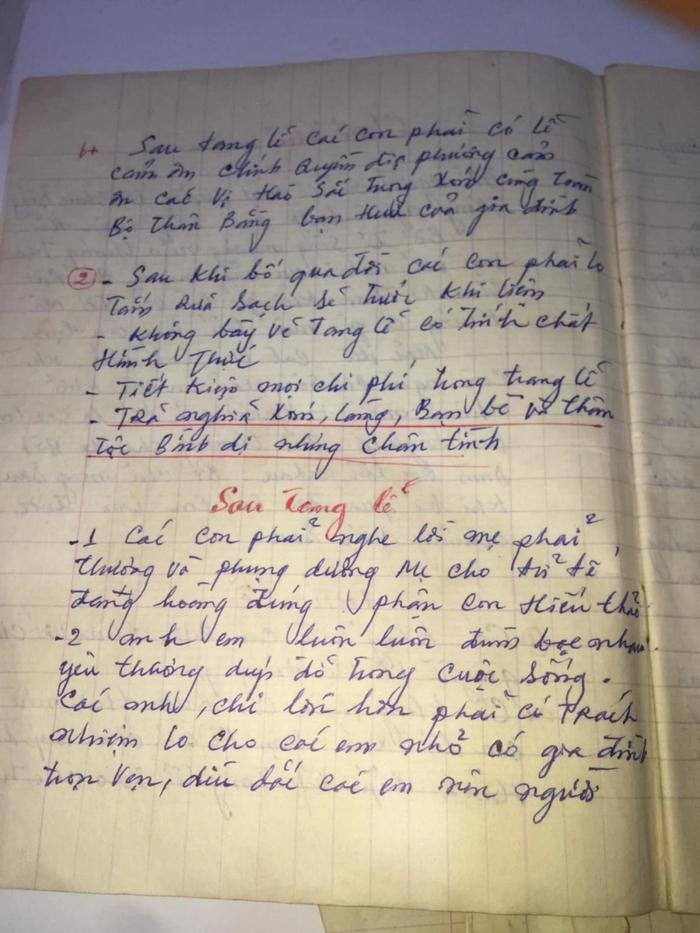 b+ Sau tang lễ các con phải có lễ
cảm ơn chính quyền địa phương cảm
ơn các vị Hào Sắc trong xóm cùng toàn
Bộ thân Bằng bạn Hữu của gia đình
2 - Sau khi bố qua đời các con phải lo
Tắm Rửa sạch sẽ trước khi liệm
- không bày vẽ Tang lễ có tính chất
Hình thức
- Tiết kiệm mọi chi phí trong trang lễ
- Trả nghĩa xóm, làng, Bạn bè và thân
tộc Bình dị nhưng chân tình
Sau Tang lễ
-1 Các con phải nghe lời mẹ phải
thương và phụng dưỡng Mẹ cho tử tế
đang hoàng đúng phận con Hiếu thảo
-2 anh em luôn luôn đùm bọc nhau
yêu thương dúp đỡ trong cuộc sống.
Các anh, chị lớn hơn phải có Trách
nhiệm lo cho các em nhỏ có gia đình
trọn vẹn, dìu dắt các em nên người